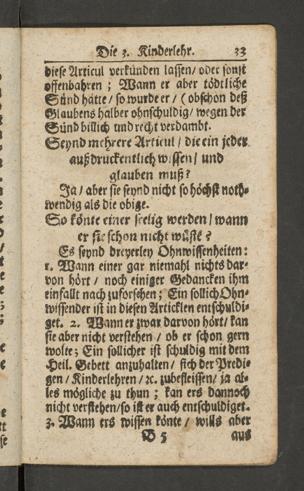 Die 3. Kinderlehr. 33
diese Articul verkünden lassen/ oder sonst
offenbahren ; Wann er aber tödtliche
Sünd hätte / so wurde er / ( obschon deß
Glaubens halber ohnschuldig/ wegen der
Sünd billich und recht verdambt.
Seynd mehrere Articul / die ein jeder
außdruckentlich wissen/ und
glauben muß ?
Ja/ aber sie seynd nicht so höchst noth-
wendig als die obige.
So könte einer seelig werden / wann
er sie schon nicht wüste ?
Es seynd dreyerley Ohnwissenheiten:
1. Wann einer gar niemahl nichts dar-
von hört / noch einiger Gedancken ihm
einfallt nach zuforsehen ; Ein sollich Ohn-
wissender ist in diesen Articklen entschuldi-
get. 2. Wann er zwar darvon hört/ kan
sie aber nicht verstehen / ob er schon gern
wolte; Ein sollicher ist schuldig mit dem
Heil. Gebett anzuhalten/ sich der Predi-
gen / Kinderlehren / ꝛc. zubefleissen/ ja al-
les mögliche zu thun ; kan ers dannoch
nicht verstehen/ so ist er auch entschuldiget.
3. Wann ers wissen könte / wills aber
B 5 aus